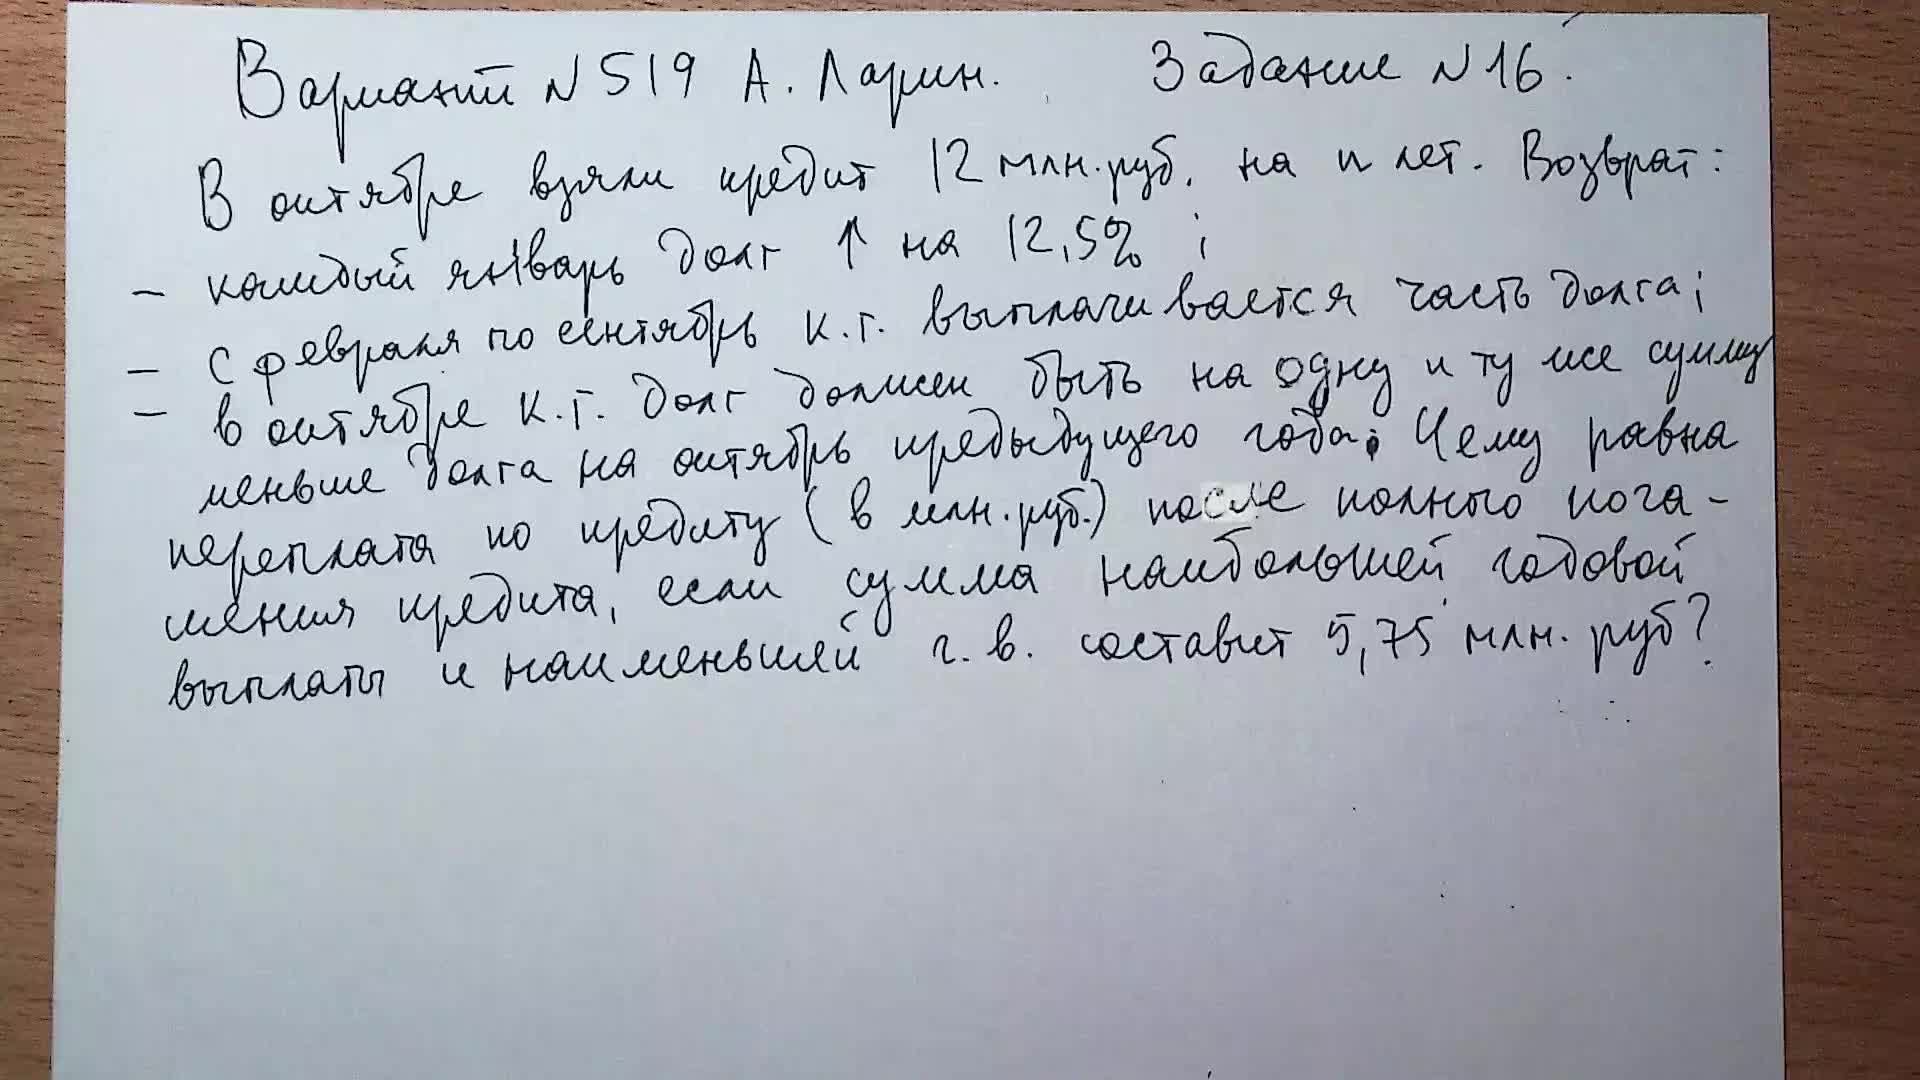 Вариант N 519 А. Ларин. Задание N 16.
В октябре взяли кредит 12 млн. руб. на n лет. Возврат:
- каждый январь долг ↑ на 12,5% ;
- с февраля по сентябрь к.г. выплачивается часть долга;
- в октябре к.г. долг должен быть на одну и ту же сумму
меньше долга на октябрь предыдущего года. Чему равна
переплата по кредиту (в млн. руб.) после полного пога-
шения кредита, если сумма наибольшей годовой
выплаты и наименьшей г. в. составит 5,75 млн. руб?